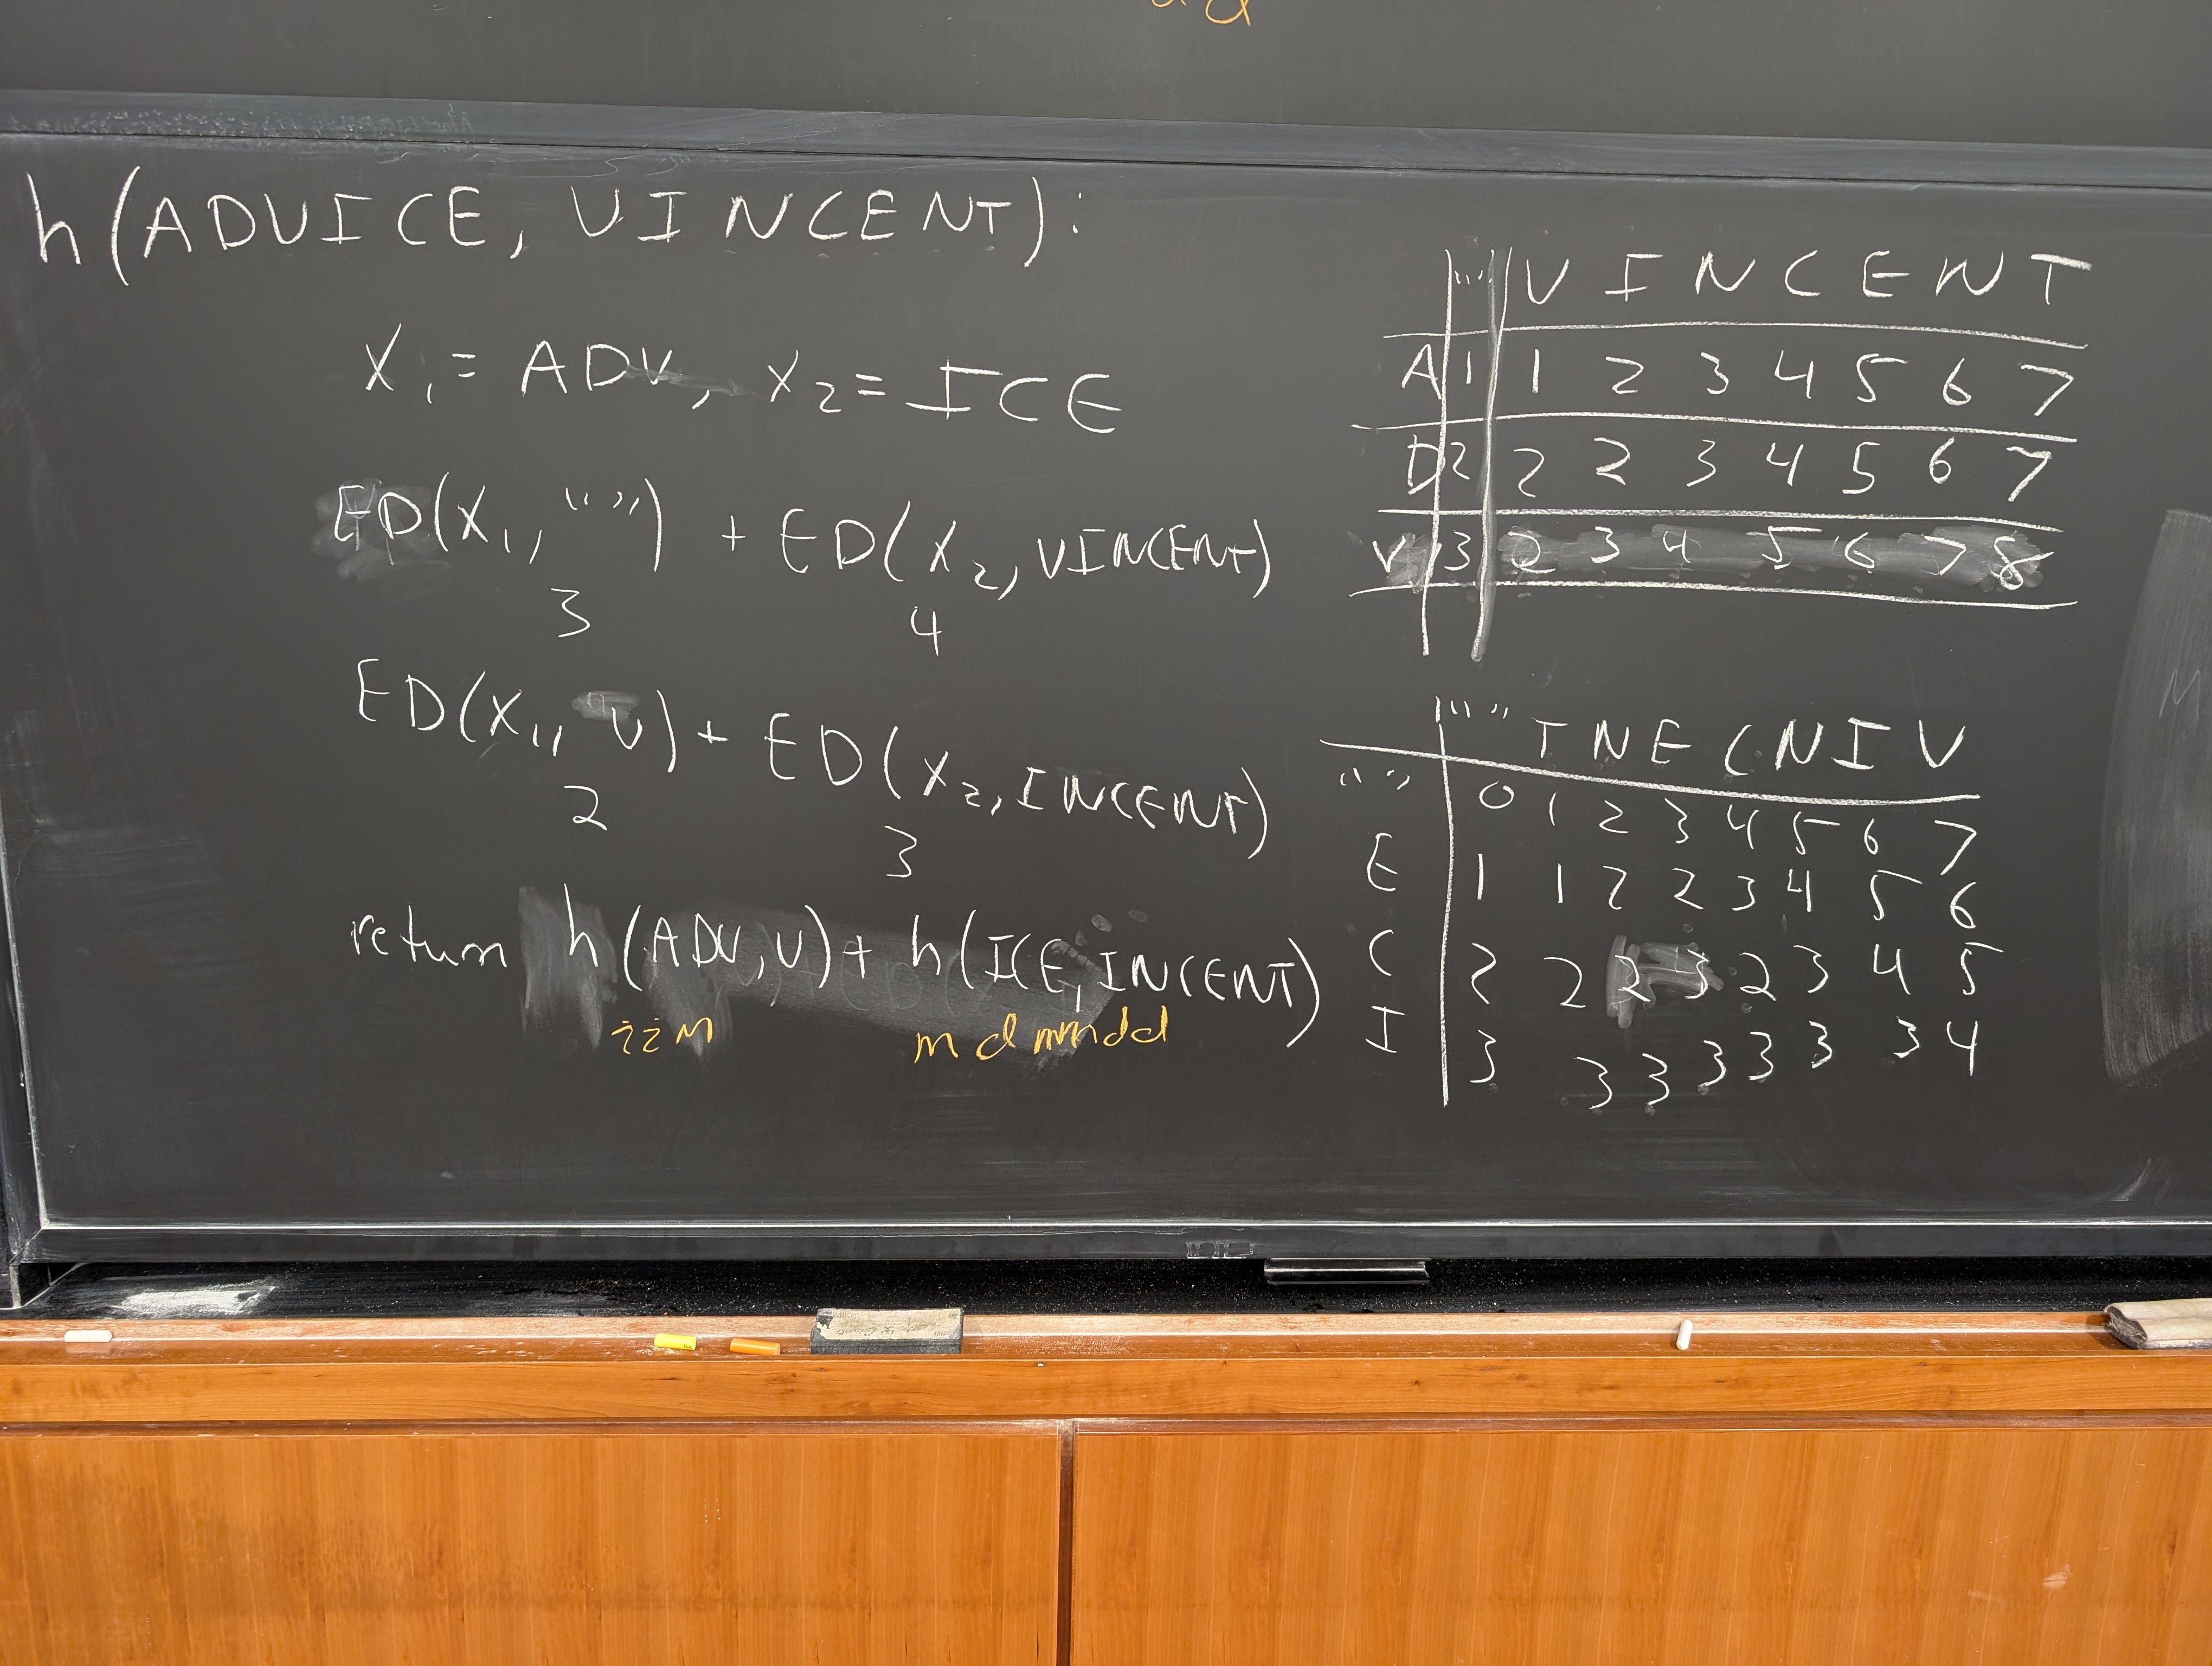 h(ADVICE, VINCENT):
X₁ = ADV, X₂ = ICE
ED(X₁, "") + ED(X₂, VINCENT)
3 4
ED(X₁, V) + ED(X₂, INCENT)
2 3
return h(ADV, V) + h(ICE, INCENT)
iim mdmmdd
"" V I N C E N T
A 1 1 2 3 4 5 6 7
D 2 2 2 3 4 5 6 7
V 3 2 3 4 5 6 7 8
"" T N E C N I V
"" 0 1 2 3 4 5 6 7
E 1 1 2 2 3 4 5 6
C 2 2 2 3 2 3 4 5
I 3 3 3 3 3 3 3 4